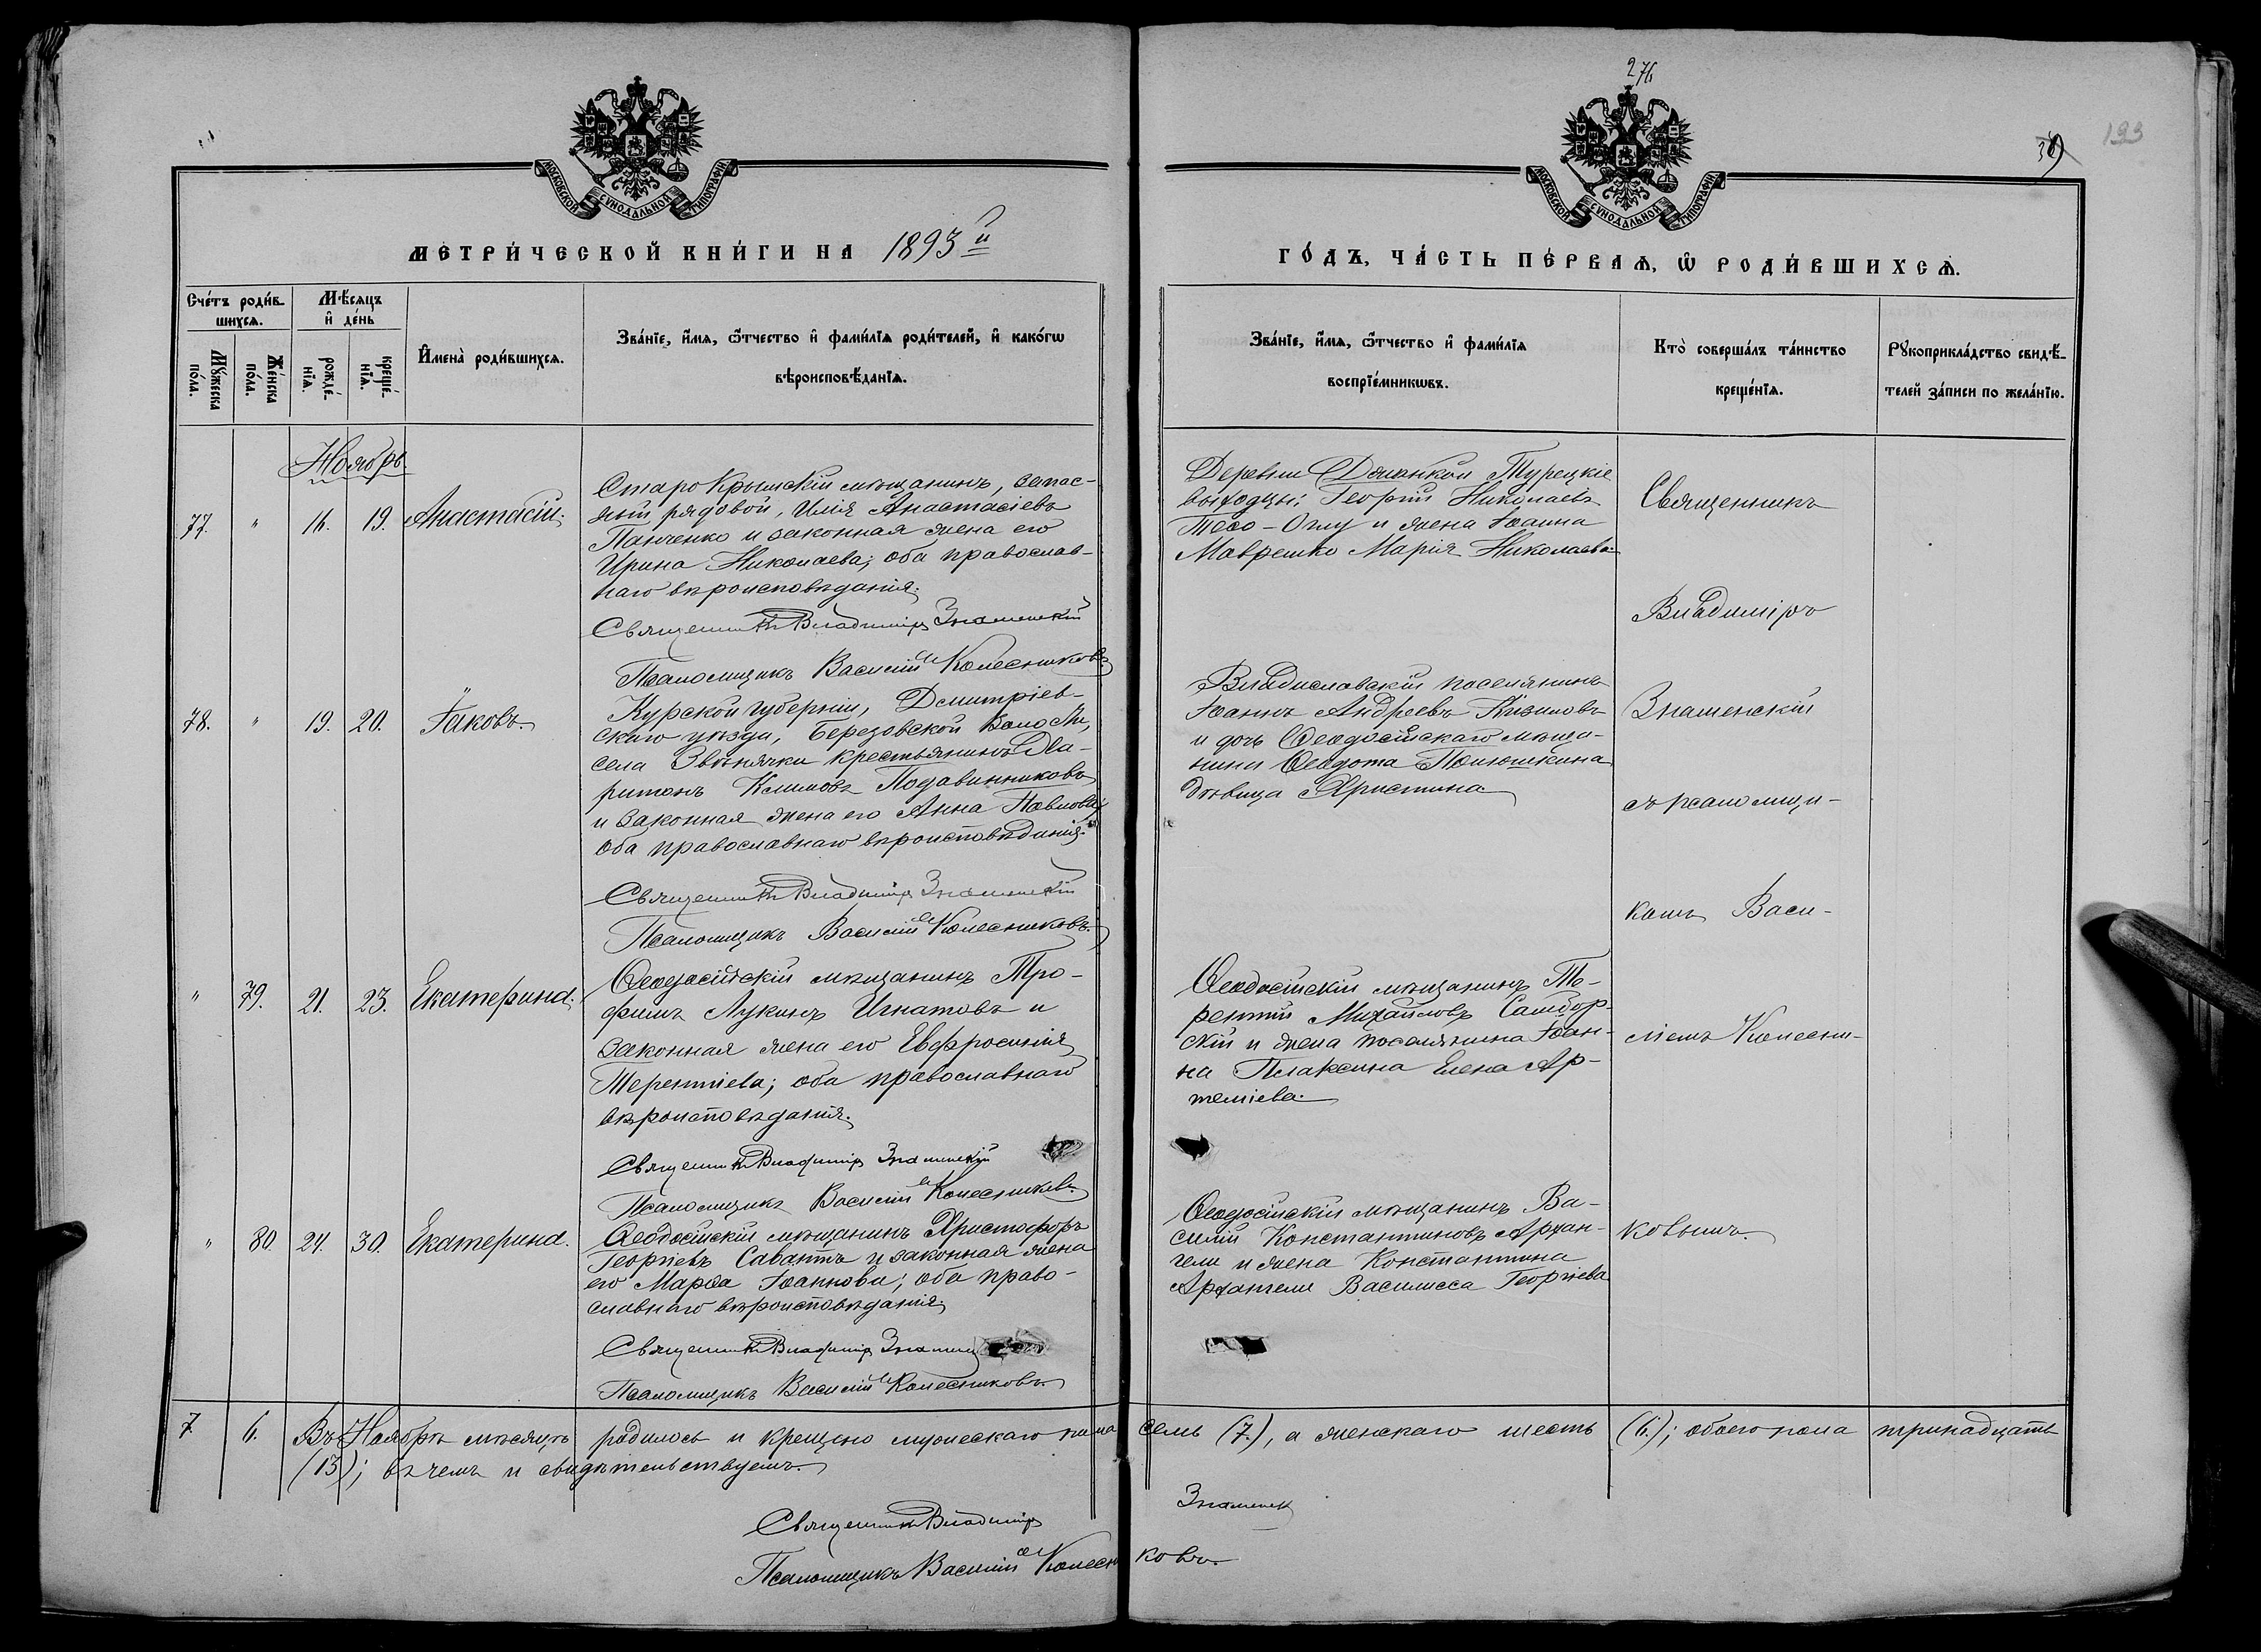 276
39
193
МОСКОВСКОЙ СУНОДАЛЬНОЙ ТИПОГРАФІИ
МОСКОВСКОЙ СУНОДАЛЬНОЙ ТИПОГРАФІИ
МЕТРИ́ЧЕСКОЙ КНИ́ГИ НА 1893й
ГО́ДЪ, ЧА́СТЬ ПЕ́РВАѦ, Ѡ҆ РОДИ́ВШИХСѦ.
Сче́тъ роди́в-
шихсѧ.
Мѣ́сѧцъ
и҆ де́нь
Мꙋ́жеска
по́ла.
Же́нска
по́ла.
рожде́-
нїѧ.
креще́-
нїѧ.
И҆мена̀ роди́вшихсѧ.
Зва́нїе, и҆́мѧ, ѻ҆́тчество и҆ фамѝлїѧ роди́телей, и҆ како́гѡ
вѣроисповѣ́данїѧ.
Зва́нїе, и҆́мѧ, ѻ҆́тчество и҆ фамѝлїѧ
воспрїе́мникѡвъ.
Кто̀ соверша́лъ та́инство
креще́нїѧ.
Рꙋкоприкла́дство свидѣ́-
телей за́писи по жела́нїю.
Ноябрь
77. " 16. 19. Анастасій.
Старо Крымскій мѣщанинъ, запас-
ный рядовой, Илія Анастасіевъ
Панченко и законная жена его
Ирина Николаева; оба православ-
наго вѣроисповѣданія.
Священникъ Владиміръ Знаменскій
Псаломщикъ Василій Колесниковъ
Деревни Джанкой Турецкіе
выходцы: Георгій Николаевъ
Тоео-Оглу и жена Іоанна
Маврешко Марія Николаева
78. " 19. 20. Іаковъ.
Курской губерніи, Дмитріев-
скаго уѣзда, Березовской Волости,
села Звѣнячки крестьянинъ Ла-
ритонъ Климовъ Подавинниковъ
и законная жена его Анна Павлова,
оба православнаго вѣроисповѣданія.
Священникъ Владиміръ Знаменскій
Псаломщикъ Василій Колесниковъ.
Владиславскій поселянинъ
Іоаннъ Андреевъ Кизиловъ
и дочь Ѳеодосійскаго мѣща-
нина Ѳеодота Полюшкина
дѣвица Христина
" 79. 21. 23. Екатерина.
Ѳеодосійскій мѣщанинъ Тро-
фимъ Лукинъ Игнатовъ и
законная жена его Евфросинія
Терентіева; оба православнаго
вѣроисповѣданія.
Священникъ Владиміръ Знаменскій
Псаломщикъ Василій Колесниковъ
Ѳеодосійскій мѣщанинъ Те-
рентій Михайловъ Самбор-
скій и жена поселянина Іоан-
на Плаксина Елена Ар-
теміева.
" 80. 24. 30. Екатерина.
Ѳеодосійскій мѣщанинъ Христофоръ
Георгіевъ Савантъ и законная жена
его Марѳа Іоаннова; оба право-
славнаго вѣроисповѣданія.
Священникъ Владиміръ
Псаломщикъ Василій Колесниковъ.
Ѳеодосійскій мѣщанинъ Ва-
силій Константиновъ Архан-
гели и жена Константина
Архангели Василисса Георгіева
Священникъ
Владиміръ
Знаменскій
съ псаломщи-
комъ Васи-
ліемъ Колесни-
ковымъ.
7. 6. Въ Ноябрѣ мѣсяцѣ родилось и крещено мужескаго пола семь (7.), а женскаго шесть (6.); обоего пола тринадцать
(13); въ чемъ и свидѣтельствуемъ.
Священникъ Владиміръ Знаменск
Псаломщикъ Василій Колесниковъ.